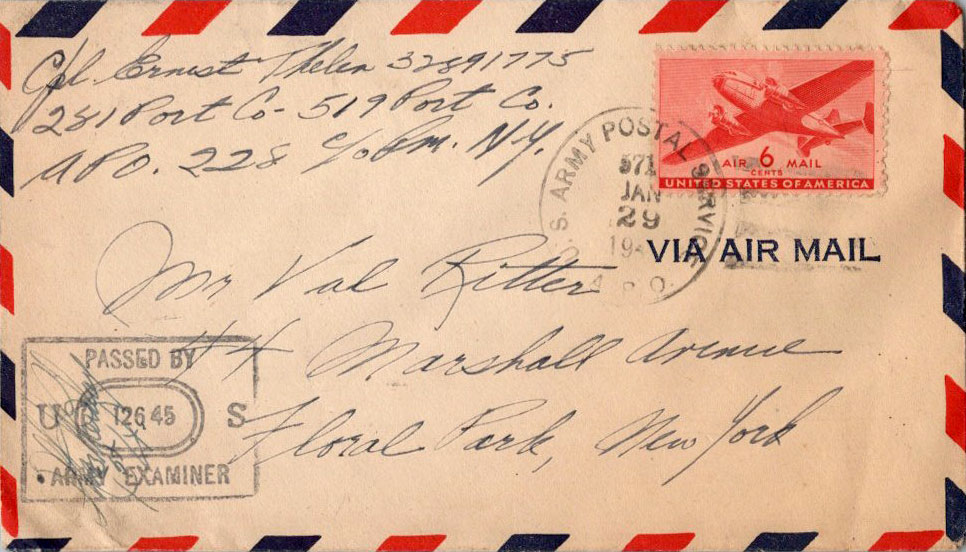 Cpl. Ernest Thelen 32891775
281 Port Co - 519 Port Co.
APO. 228 c/o P.m. N.Y.
U.S. ARMY POSTAL SERVICE
571
JAN
29
19
A.P.O.
AIR 6 MAIL
CENTS
UNITED STATES OF AMERICA
VIA AIR MAIL
Mr Val Ritter
44 Marshall Avenue
Floral Park, New York
PASSED BY
U 12645 S
ARMY EXAMINER